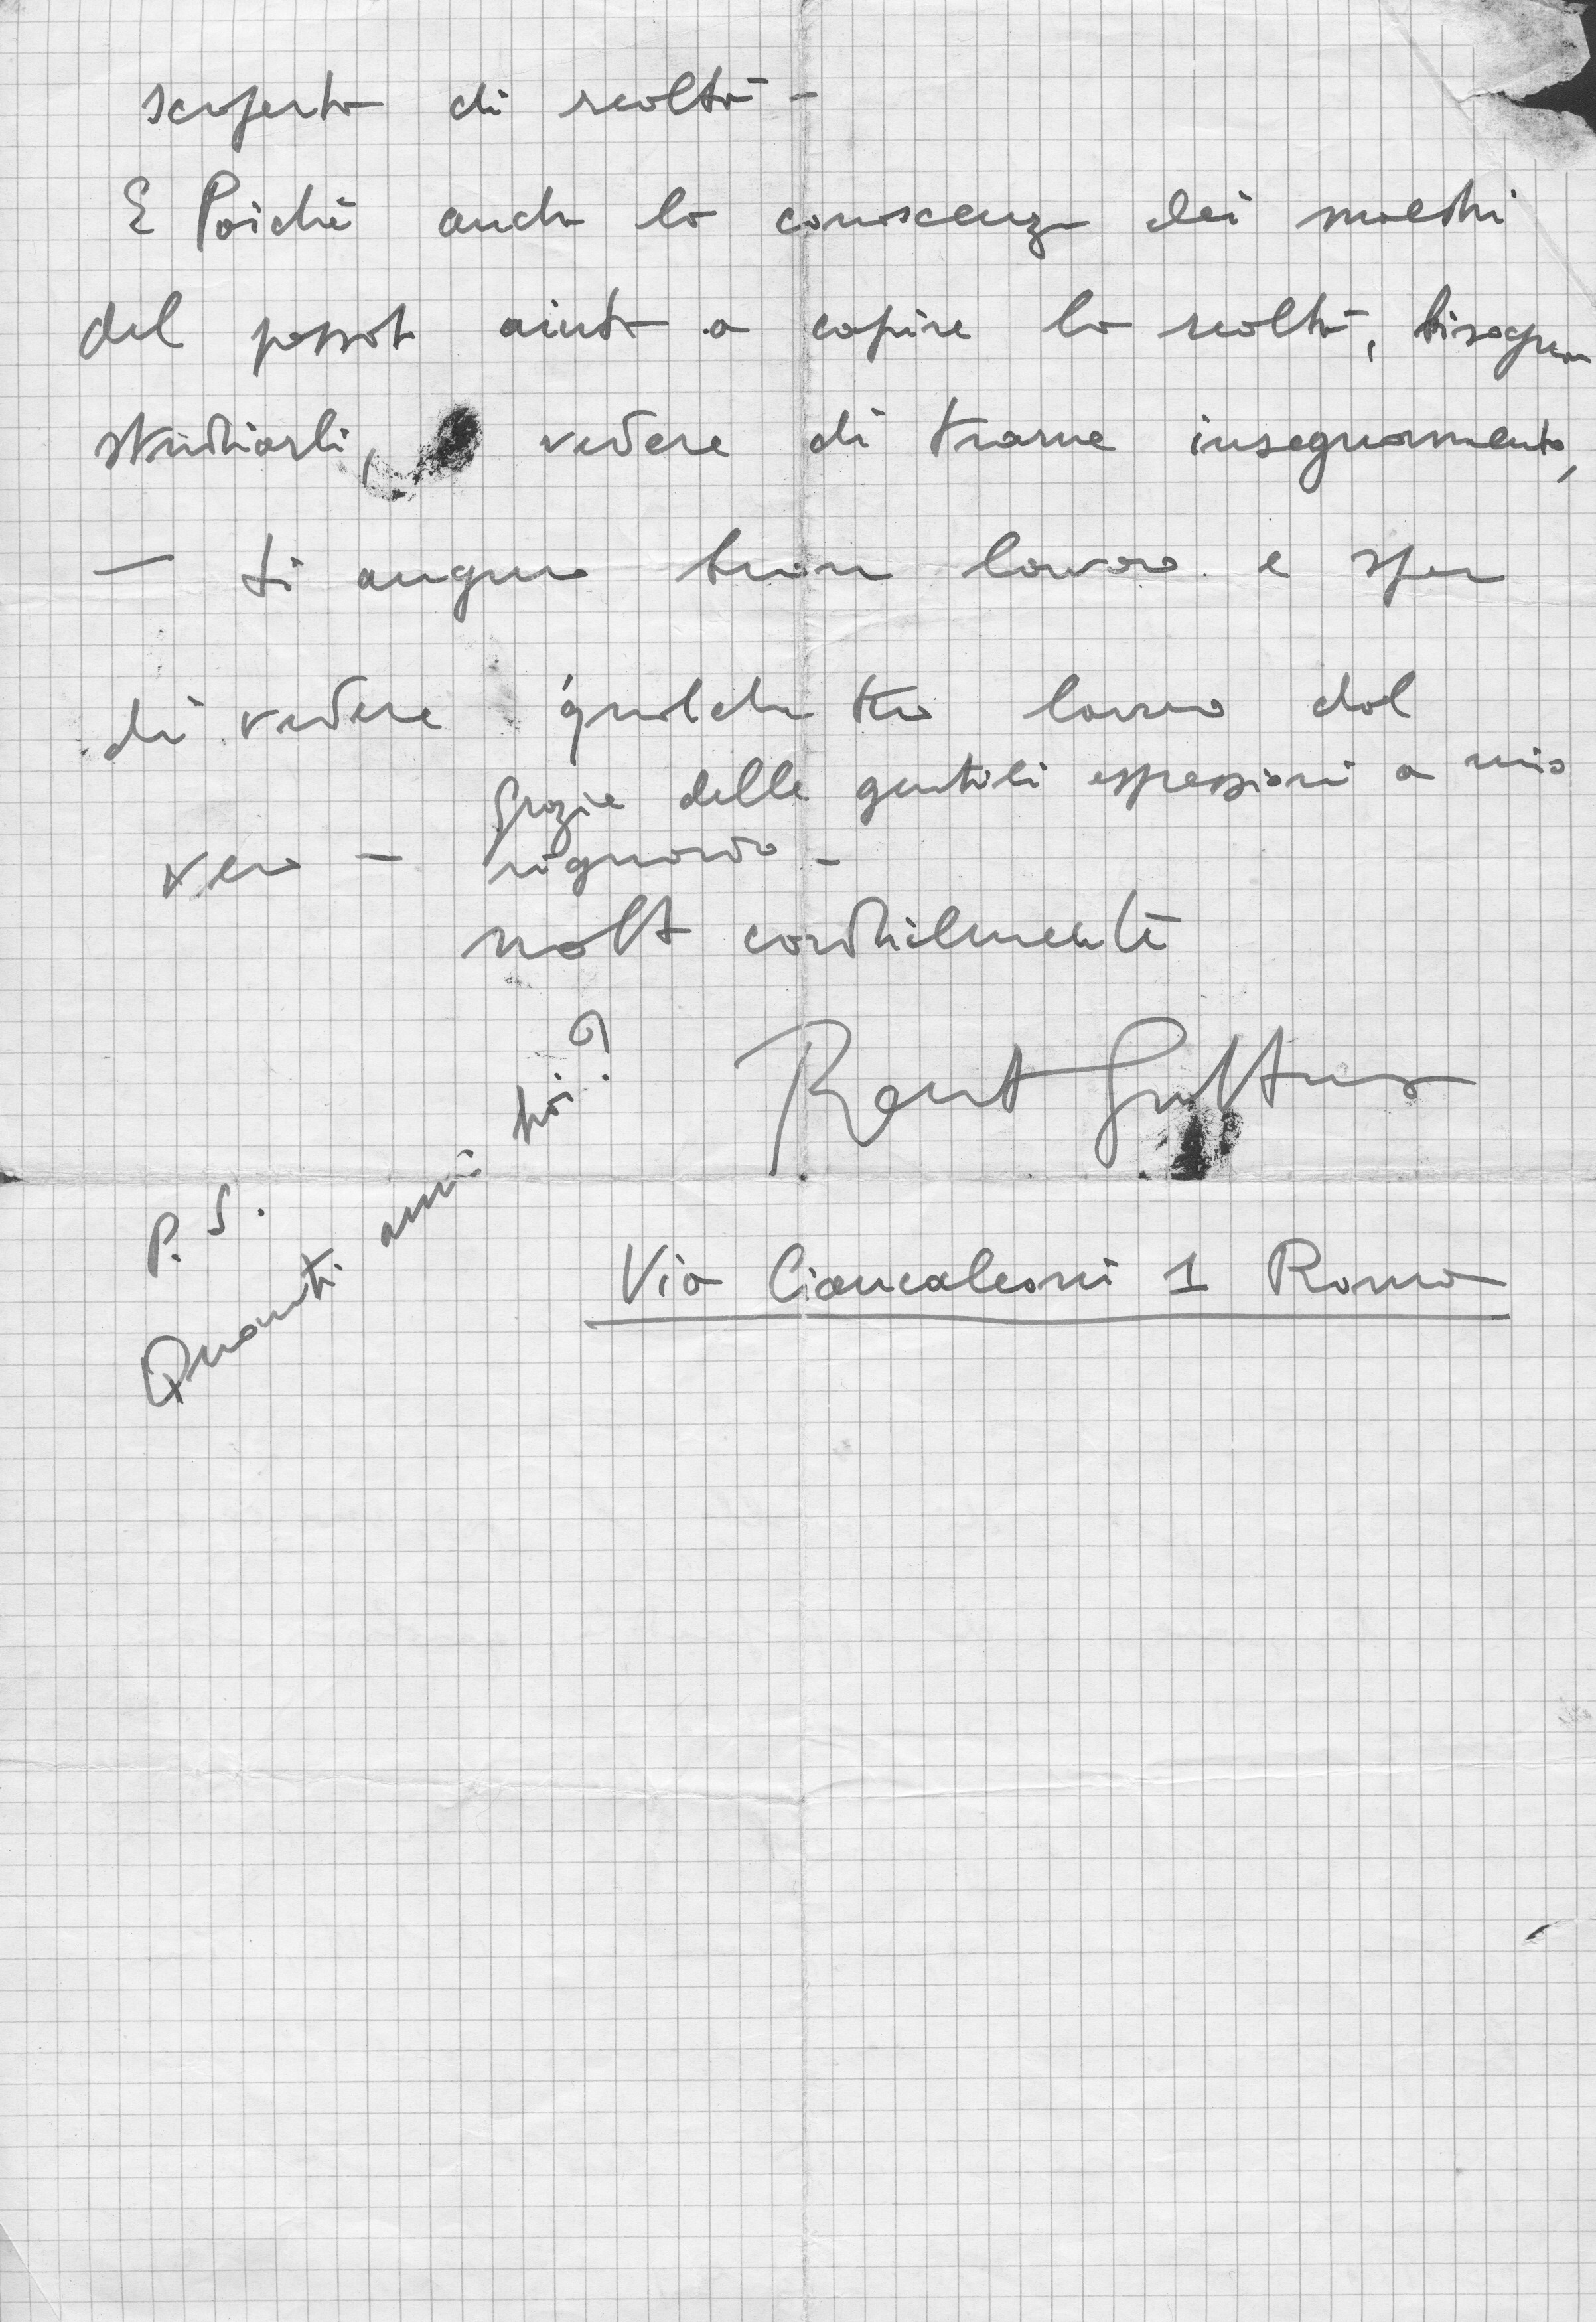 scoperta di realtà -
E Poiché anche la conoscenza dei maestri
del passato aiuta a capire la realtà, bisogna
studiarli, vedere di trarne insegnamento,
— ti auguro buon lavoro e spero
di vedere qualche tuo lavoro dal
vero -
Grazie delle gentili espressioni a mio
riguardo -
molto cordialmente
Renato Guttuso
P.S.
Quanti anni hai?
Via Ciancaleoni 1 Roma